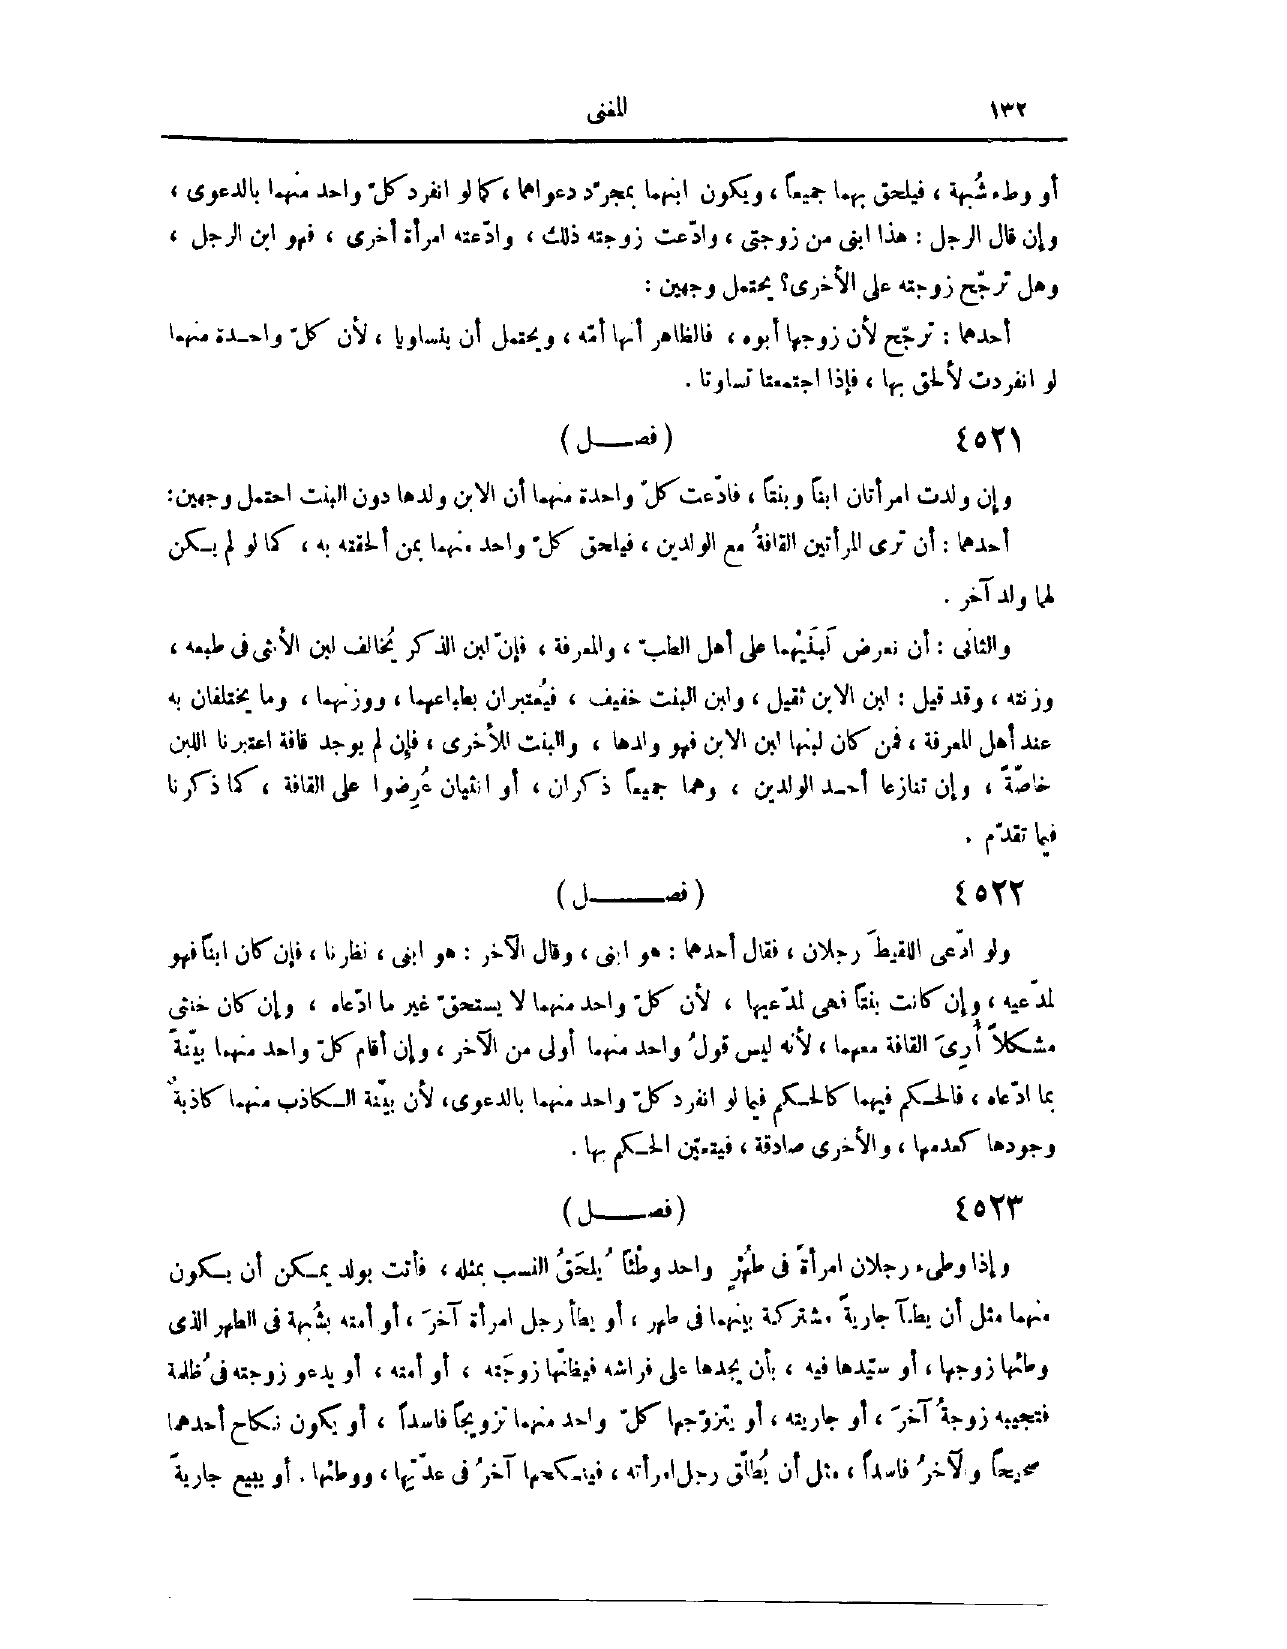 ١٣٢ المغنى
أو وطء شُبهة ، فيلحق بهما جميعاً ، ويكون ابنهما بمجرّد دعواهما ، كما لو انفرد كلّ واحد منهما بالدعوى ،
وإن قال الرجل : هذا ابنى من زوجتى ، وادّعت زوجته ذلك ، وادّعته امرأة أخرى ، فهو ابن الرجل ،
وهل ترجّح زوجته على الأخرى؟ يحتمل وجهين :
أحدهما : ترجّح لأن زوجها أبوه ، فالظاهر أنها أمّه ، ويحتمل أن يتساويا ، لأن كلّ واحدة منهما
لو انفردت لألحق بها ، فإذا اجتمعتا تساوتا .
٤٥٢١ ( فصــل )
وإن ولدت امرأتان ابناً وبنتاً ، فادّعت كلّ واحدة منهما أن الابن ولدها دون البنت احتمل وجهين:
أحدهما : أن ترى المرأتين القافةُ مع الولدين ، فيلحق كلّ واحد منهما بمن ألحقته به ، كما لو لم يكن
لهما ولد آخر .
والثانى : أن نعرض لَبَنَيْهما على أهل الطبّ ، والمعرفة ، فإنّ لبن الذكر يُخالف لبن الأنثى فى طبعه ،
وزنته ، وقد قيل : لبن الابن ثقيل ، ولبن البنت خفيف ، فيُعتبران بطباعهما ، ووزنهما ، وما يختلفان به
عند أهل المعرفة ، فمن كان لبنها لبن الابن فهو ولدها ، والبنت للأخرى ، فإن لم يوجد قافة اعتبرنا اللبن
خاصّةً ، وإن تنازعا أحد الولدين ، وهما جميعاً ذكران ، أو انثيان عُرِضوا على القافة ، كما ذكرنا
فيما تقدّم .
٤٥٢٢ ( فصــل )
ولو ادّعى اللقيطَ رجلان ، فقال أحدهما : هو ابنى ، وقال الآخر : هو ابنتى ، نظرنا ، فإن كان ابناً فهو
لمدّعيه ، وإن كانت بنتاً فهى لمدّعيها ، لأن كلّ واحد منهما لا يستحقّ غير ما ادّعاه ، وإن كان خنثى
مشكلاً أُرِىَ القافة معهما ، لأنه ليس قولُ واحد منهما أولى من الآخر ، وإن أقام كلّ واحد منهما بيّنةً
بما ادّعاه ، فالحكم فيهما كالحكم فيما لو انفرد كلّ واحد منهما بالدعوى، لأن بيّنة الكاذب منهما كاذبةٌ
وجودها كعدمها ، والأخرى صادقة ، فيتعيّن الحكم بها .
٤٥٢٣ ( فصــل )
وإذا وطىء رجلان امرأةً فى طُهْرٍ واحد وطْئاً يُلحَقُ النسب بمثله ، فأتت بولد يمكن أن يكون
منهما مثل أن يطآ جاريةً مشتركة بينهما فى طهر ، أو يطأ رجل امرأة آخرَ ، أو أمته بشُبهة فى الطهر الذى
وطئها زوجها ، أو سيّدها فيه ، بأن يجدها على فراشه فيظنّها زوجَته ، أو أمته ، أو يدعو زوجته فى ظلمة
فتجيبه زوجةُ آخرَ ، أو جاريته ، أو يتزوّجها كلّ واحد منهما تزويجاً فاسداً ، أو يكون نكاح أحدهما
صحيحاً والآخرُ فاسداً ، مثل أن يُطلّق رجل امرأته ، فينكحها آخرُ فى عدّتها ، ووطئها . أو يبيع جاريةً